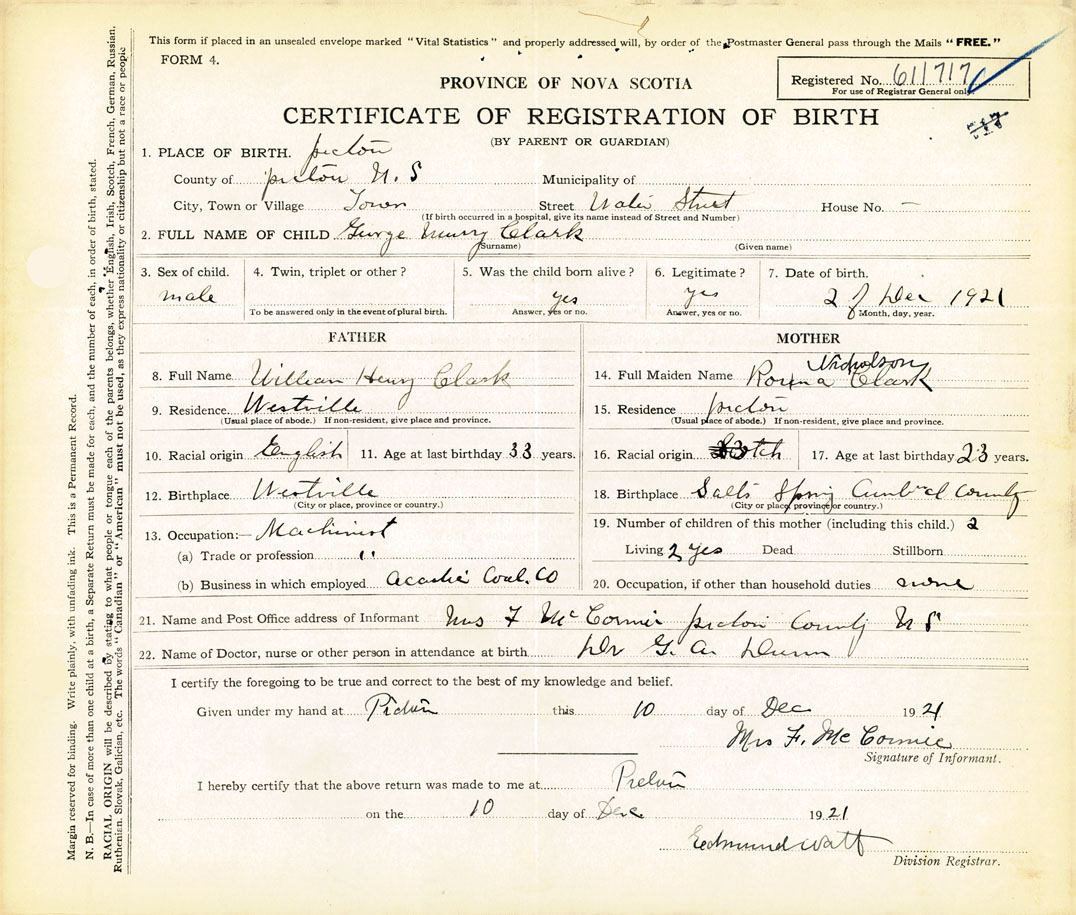 This form if placed in an unsealed envelope marked "Vital Statistics" and properly addressed will, by order of the Postmaster General pass through the Mails "FREE."
FORM 4.
Registered No. 611717
For use of Registrar General only.
PROVINCE OF NOVA SCOTIA
CERTIFICATE OF REGISTRATION OF BIRTH
(BY PARENT OR GUARDIAN)
1. PLACE OF BIRTH. Pictou
County of Pictou N. S Municipality of
City, Town or Village Town Street Water Street House No. —
(If birth occurred in a hospital, give its name instead of Street and Number)
2. FULL NAME OF CHILD George Henry Clark
(Surname) (Given name)
3. Sex of child. 4. Twin, triplet or other? 5. Was the child born alive? 6. Legitimate? 7. Date of birth.
male yes yes 2 of Dec 1921
To be answered only in the event of plural birth. Answer, yes or no. Answer, yes or no. Month, day, year.
FATHER MOTHER
8. Full Name William Henry Clark
9. Residence Westville
(Usual place of abode.) If non-resident, give place and province.
10. Racial origin English 11. Age at last birthday 33 years.
12. Birthplace Westville
(City or place, province or country.)
13. Occupation:— Machinist
(a) Trade or profession "
(b) Business in which employed Acadia Coal. CO
Nicholson
14. Full Maiden Name Clark
15. Residence Pictou
(Usual place of abode.) If non-resident, give place and province.
16. Racial origin Scotch 17. Age at last birthday 23 years.
18. Birthplace Salts Spring County
(City or place, province or country.)
19. Number of children of this mother (including this child.) 2
Living 2 yes Dead Stillborn
20. Occupation, if other than household duties none
21. Name and Post Office address of Informant Mrs F McCormic Pictou County N S
22. Name of Doctor, nurse or other person in attendance at birth Dr G. A. Dunn
I certify the foregoing to be true and correct to the best of my knowledge and belief.
Given under my hand at Pictou this 10 day of Dec 1921
Mrs F. McCormic
Signature of Informant.
I hereby certify that the above return was made to me at Pictou
on the 10 day of Dec 1921
Edmund Watt
Division Registrar.
Margin reserved for binding. Write plainly, with unfading ink. This is a Permanent Record.
N. B.—In case of more than one child at a birth, a Separate Return must be made for each, and the number of each, in order of birth, stated.
RACIAL ORIGIN will be described by stating to what people or tongue each of the parents belongs, whether English, Irish, Scotch, French, German, Russian,
Ruthenian, Slovak, Galician, etc. The words "Canadian" or "American" must not be used, as they express nationality or citizenship but not a race or people